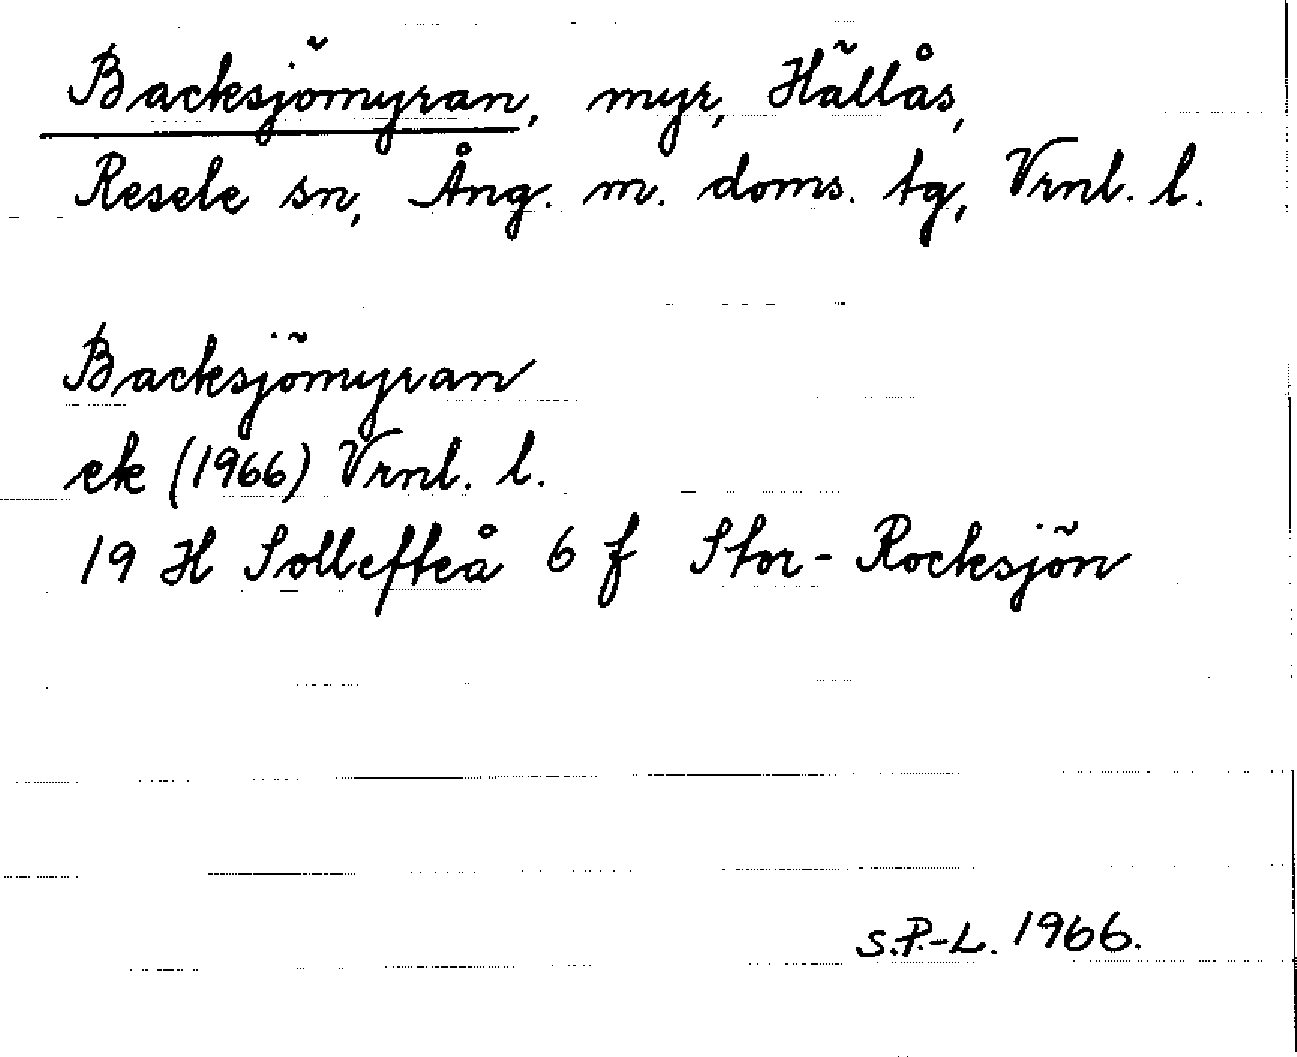 Backsjömyran, myr, Hällås,
Resele sn, Ång. m. doms. tg, Vrnl. l.
Backsjömyran
ek (1966) Vrnl. l.
19 H Sollefteå 6 f Stor-Rocksjön
S.P.-L. 1966.